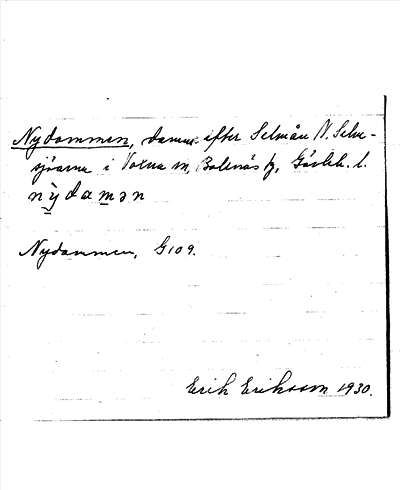 Nydammen, damm efter Selmån N. Selm-
sjöarna i Voxna sn, Bollnäs tg, Gävleb. l.
nỳdamən
Nydammen, G109.
Erik Eriksson 1930.